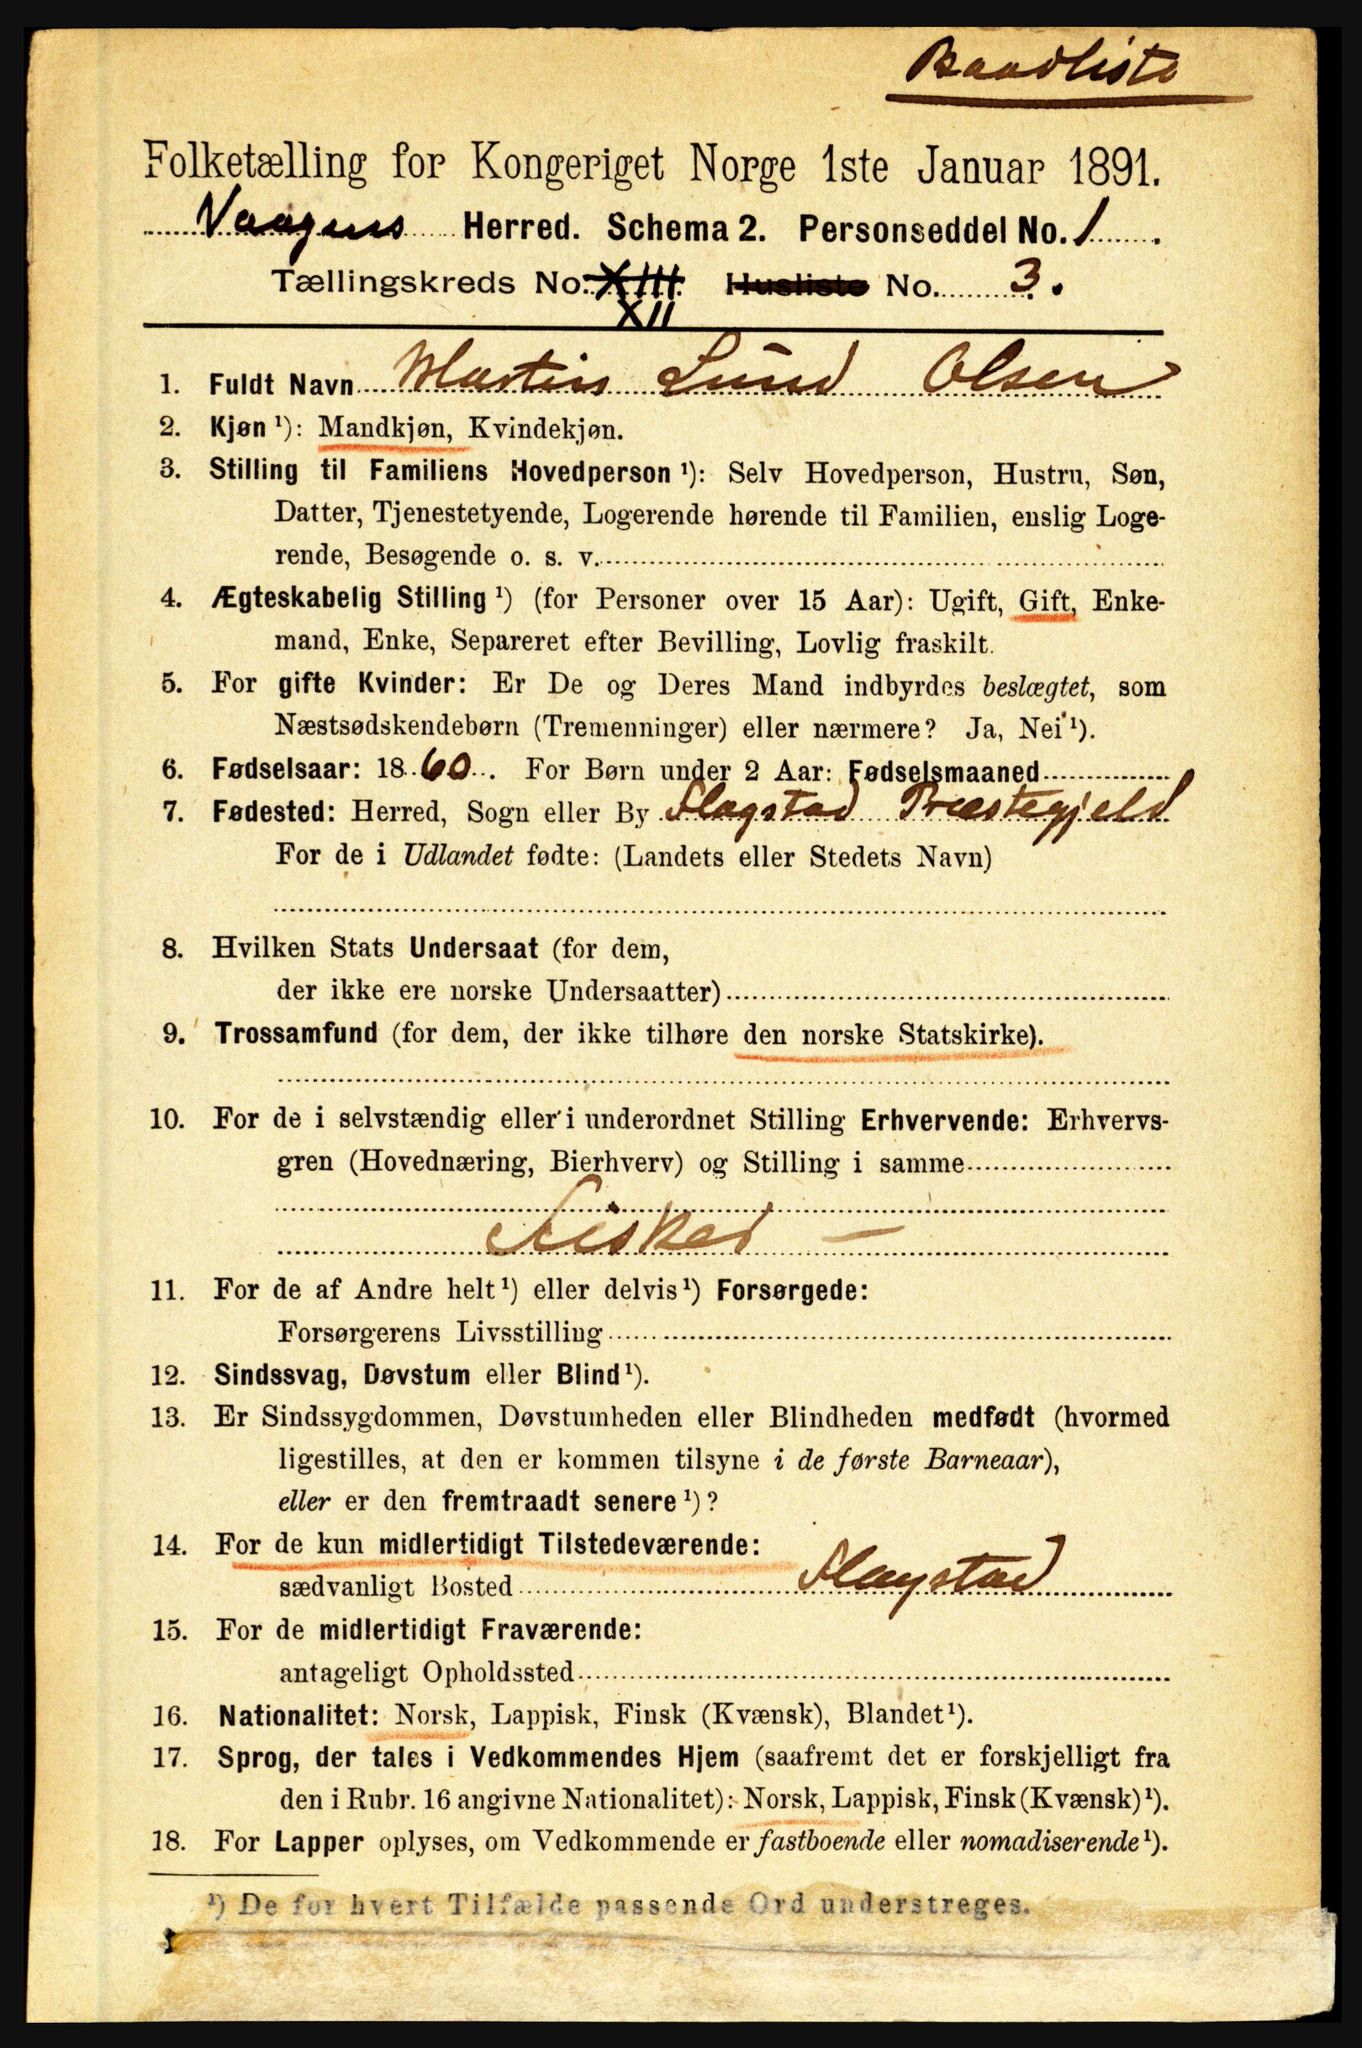 Baadliste
Folketælling for Kongeriget Norge 1ste Januar 1891.
Vaagens Herred. Schema 2. Personseddel No. 1.
Tællingskreds No. XIII Husliste No. 3.
XII
1. Fuldt Navn Martin Lund Olsen
2. Kjøn ¹): Mandkjøn, Kvindekjøn.
3. Stilling til Familiens Hovedperson ¹): Selv Hovedperson, Hustru, Søn,
Datter, Tjenestetyende, Logerende hørende til Familien, enslig Loge-
rende, Besøgende o. s. v.
4. Ægteskabelig Stilling ¹) (for Personer over 15 Aar): Ugift, Gift, Enke-
mand, Enke, Separeret efter Bevilling, Lovlig fraskilt.
5. For gifte Kvinder: Er De og Deres Mand indbyrdes beslægtet, som
Næstsødskendebørn (Tremenninger) eller nærmere? Ja, Nei ¹).
6. Fødselsaar: 1860. For Børn under 2 Aar: Fødselsmaaned
7. Fødested: Herred, Sogn eller By Flagstad Præstegjeld
For de i Udlandet fødte: (Landets eller Stedets Navn)
8. Hvilken Stats Undersaat (for dem,
der ikke ere norske Undersaatter)
9. Trossamfund (for dem, der ikke tilhøre den norske Statskirke).
10. For de i selvstændig eller i underordnet Stilling Erhvervende: Erhvervs-
gren (Hovednæring, Bierhverv) og Stilling i samme
Fisker —
11. For de af Andre helt ¹) eller delvis ¹) Forsørgede:
Forsørgerens Livsstilling
12. Sindssvag, Døvstum eller Blind ¹).
13. Er Sindssygdommen, Døvstumheden eller Blindheden medfødt (hvormed
ligestilles, at den er kommen tilsyne i de første Barneaar),
eller er den fremtraadt senere ¹)?
14. For de kun midlertidigt Tilstedeværende:
sædvanligt Bosted Flagstad
15. For de midlertidigt Fraværende:
antageligt Opholdssted
16. Nationalitet: Norsk, Lappisk, Finsk (Kvænsk), Blandet ¹).
17. Sprog, der tales i Vedkommendes Hjem (saafremt det er forskjelligt fra
den i Rubr. 16 angivne Nationalitet): Norsk, Lappisk, Finsk (Kvænsk) ¹).
18. For Lapper oplyses, om Vedkommende er fastboende eller nomadiserende ¹).
¹) De for hvert Tilfælde passende Ord understreges.